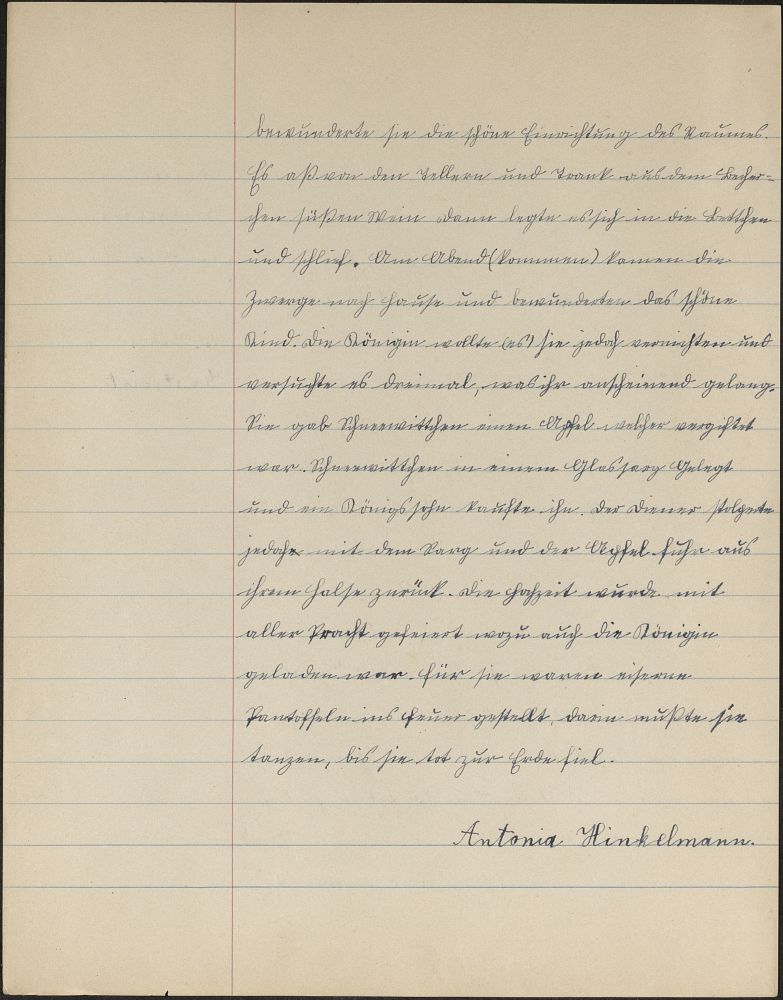 bewunderte sie die schöne Einrichtung des Raumes.
Es aß von den Tellern und Trank aus dem Becher=
chen süßen Wein dann legte es sich in die Bettchen
und schlief. Am Abend (kommen) kamen die
Zwerge nach Hause und bewunderten das schöne
Kind. Die Königin wollte (es) sie jedoch vernichten und
versuchte es dreimal, was ihr anscheinend gelang.
Sie gab Schneewittchen einen Apfel welcher vergiftet
war. Schneewittchen in einem Glassarg Gelegt
und ein Königssohn kaufte ihn. Der Diener stolperte
jedoch mit dem Sarg und der Apfel fuhr aus
ihrem Halse zurück. Die Hochzeit wurde mit
aller Pracht gefeiert wozu auch die Königin
geladen war. Für sie waren eiserne
Pantoffeln ins Feuer gestellt, darin mußte sie
tanzen, bis sie tot zur Erde fiel.
Antonia Hinkelmann.